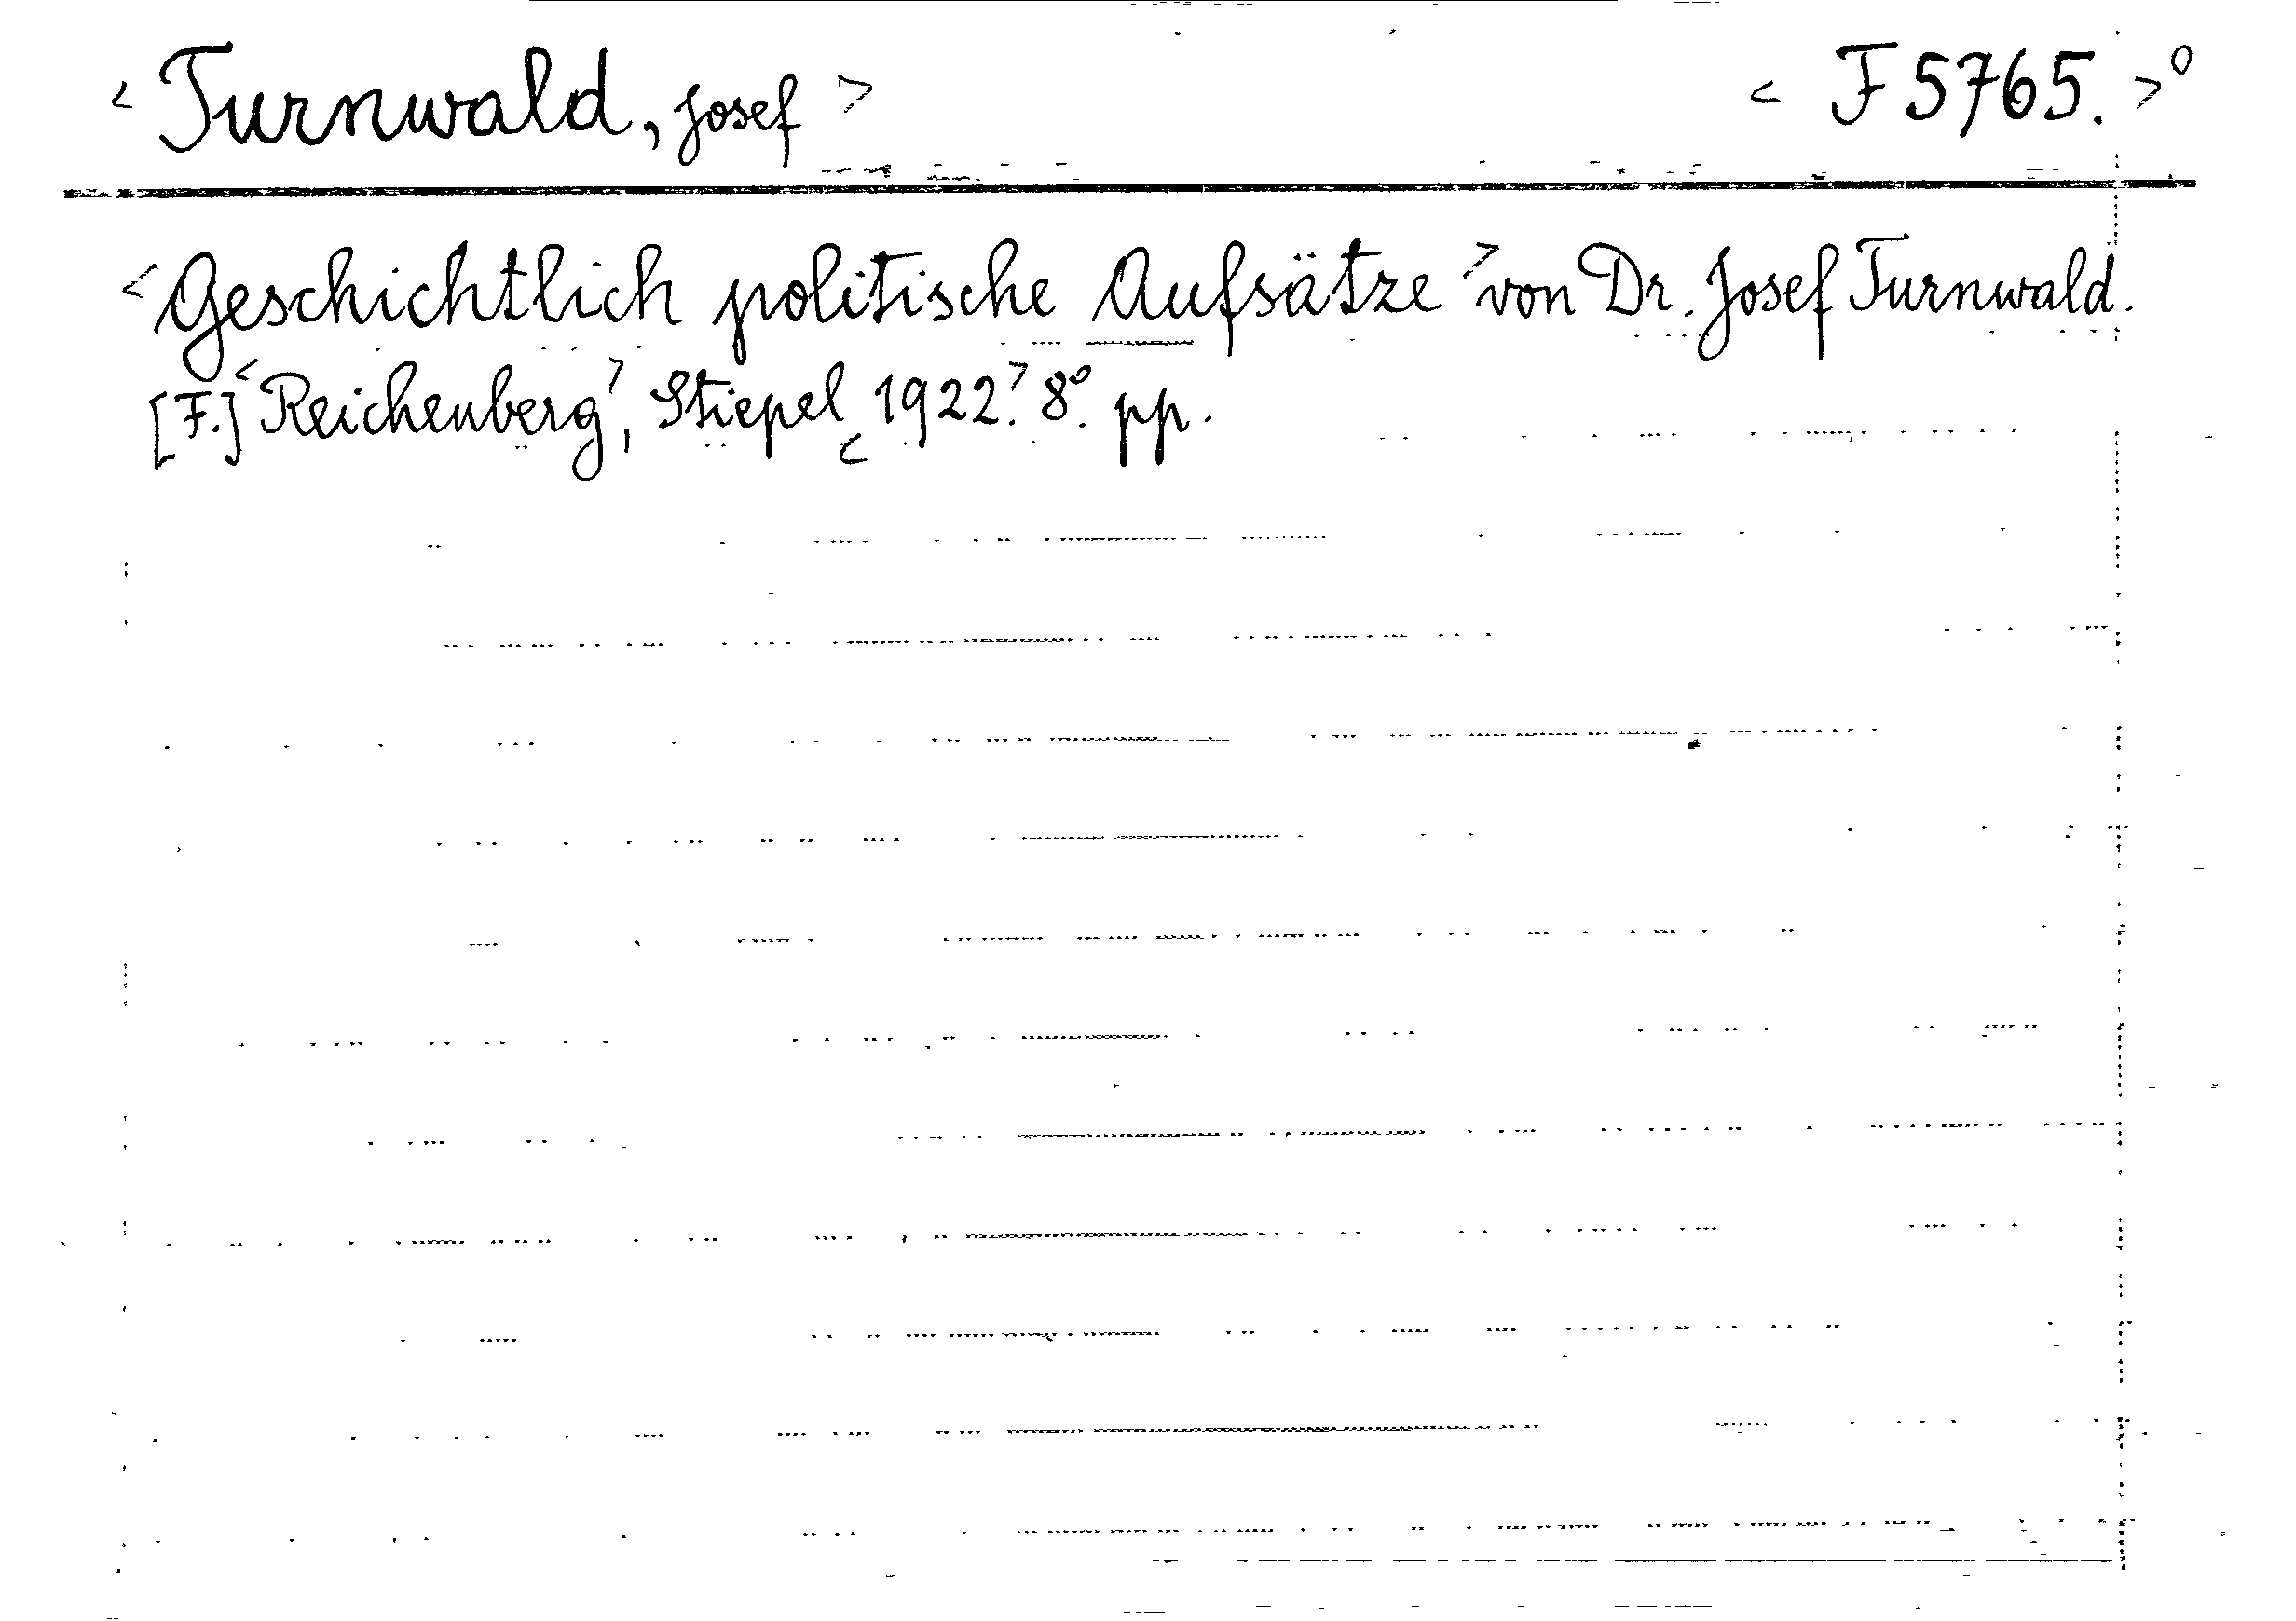 < Turnwald, Josef > < F 5765. >°
<Geschichtlich politische Aufsätze> von Dr. Josef Turnwald.
[F.] <Reichenberg>, Stiepel <1922.> 8°. pp.